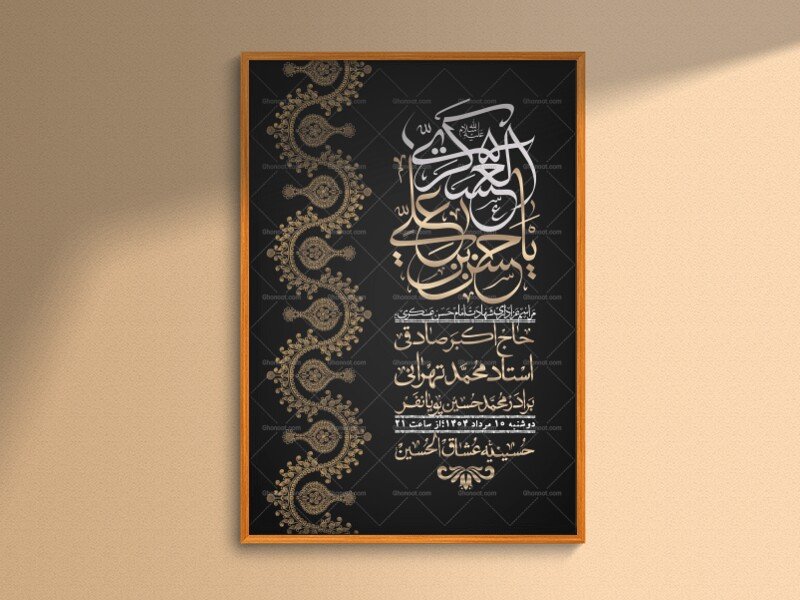 العسكري
عليه السلام
يا حسن بن علي
مراسم عزاداری شهادت امام حسن عسکری
حاج اکبر صادقی
استاد محمد تهرانی
برادر محمد حسین پویانفر
دوشنبه ۱۰ مرداد ۱۴۰۴؛ از ساعت ۲۱
حسینیه عشاق الحسین
Ghonoot.com